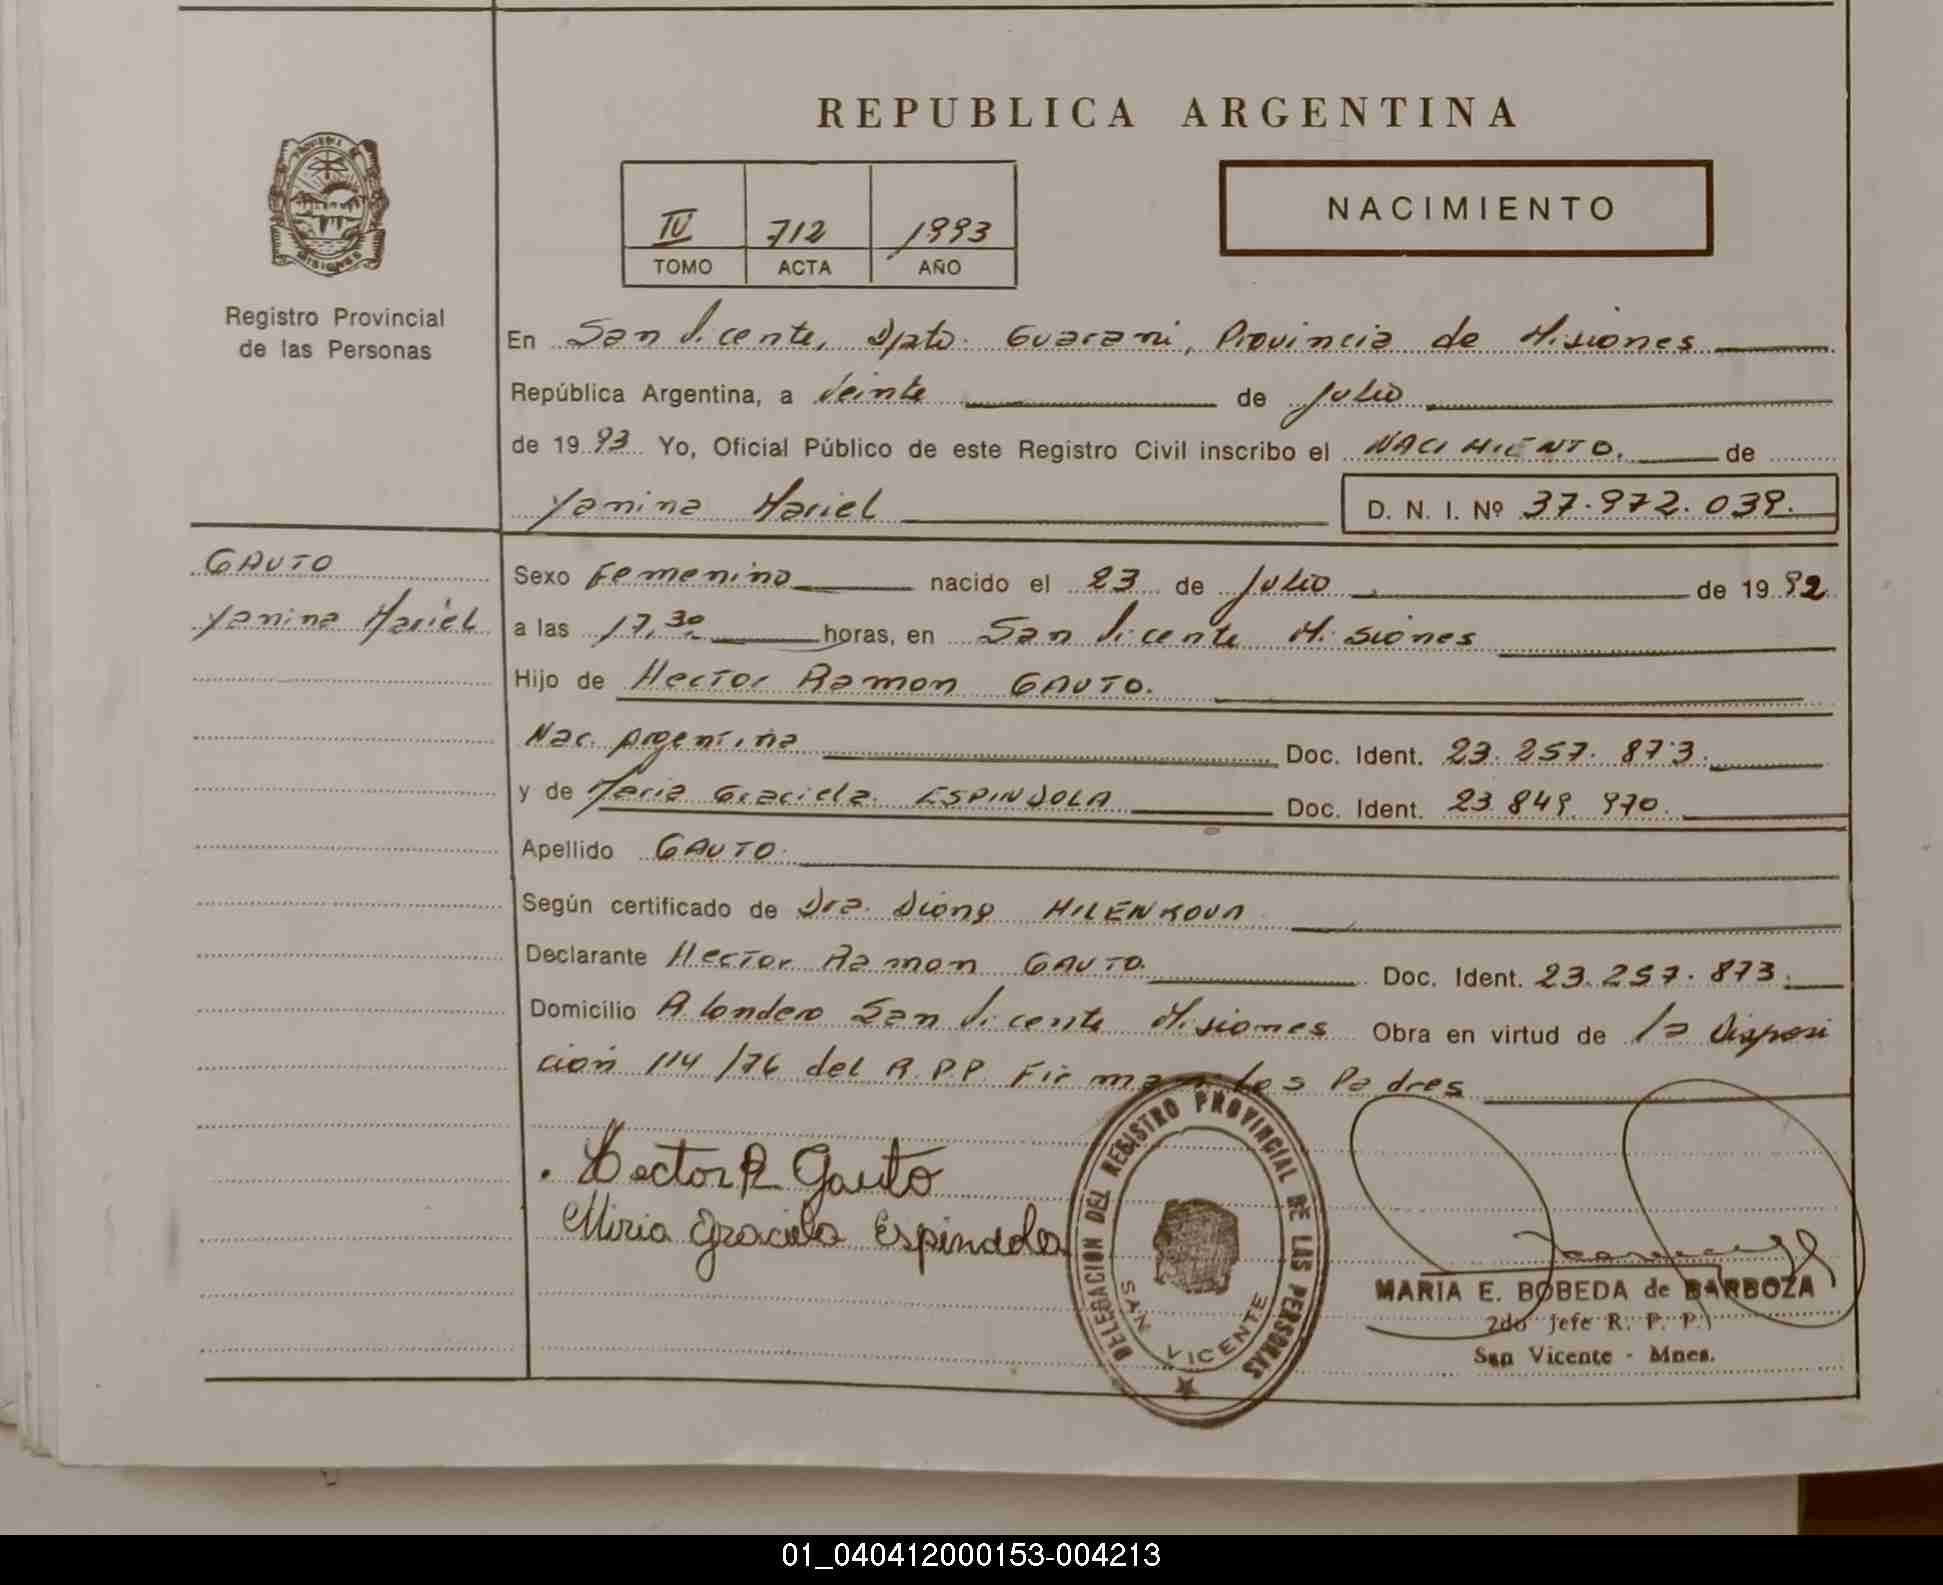 REPUBLICA ARGENTINA
NACIMIENTO
IV 712 1993
TOMO ACTA AÑO
Registro Provincial
de las Personas
En San Vicente, Dpto. Guarani, Provincia de Misiones
República Argentina, a Veinte de Julio
de 1993 Yo, Oficial Público de este Registro Civil inscribo el NACIMIENTO. de
Yanina Mariel D. N. I. Nº 37.972.039.
GAUTO
Yanina Mariel
Sexo Femenino nacido el 23 de Julio de 1992
a las 17,30 horas, en San Vicente Misiones
Hijo de Hector Ramon GAUTO.
Nac. Argentina Doc. Ident. 23.257.873.
y de Maria Graciela ESPINDOLA Doc. Ident. 23.849.970.
Apellido GAUTO.
Según certificado de Dra. Diong MILENKOVA
Declarante Hector Ramon GAUTO. Doc. Ident. 23.257.873.
Domicilio A. Londero San Vicente Misiones Obra en virtud de la Disposi
ción 114/76 del R.P.P. Firman los Padres
Hector R Gauto
Miria Graciela Espindola
DELEGACION DEL REGISTRO PROVINCIAL DE LAS PERSONAS
SAN VICENTE
MARIA E. BOBEDA de BARBOZA
2do Jefe R. P. P.
San Vicente - Mnes.
01_040412000153-004213